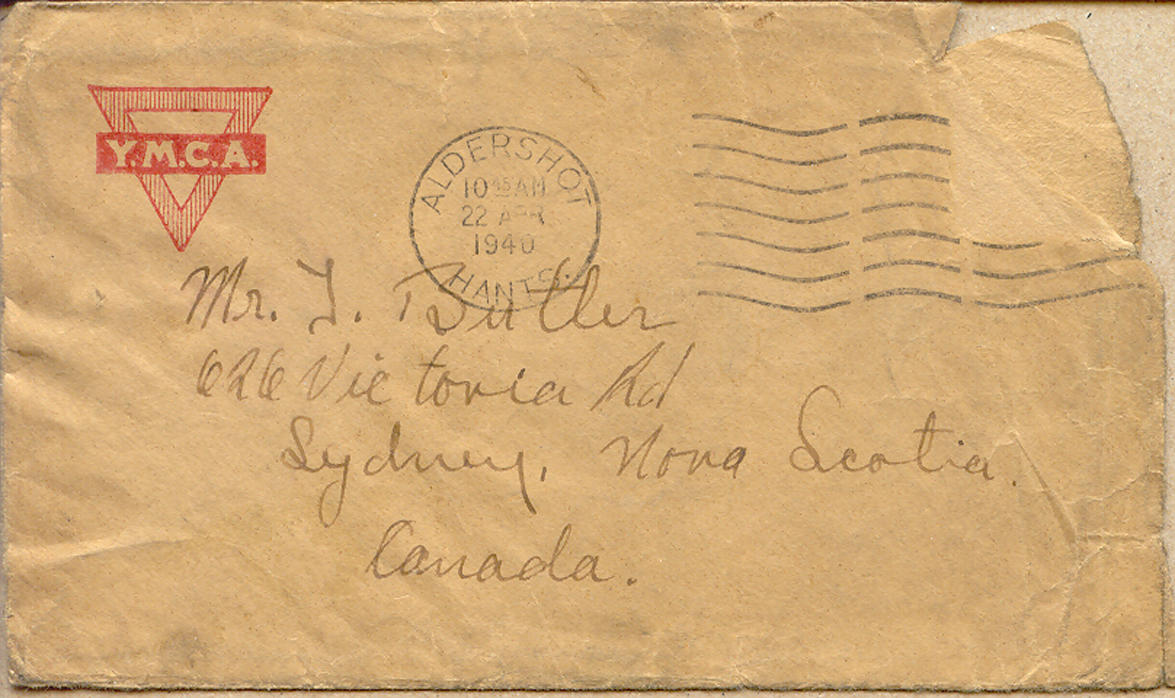 Y.M.C.A.
ALDERSHOT
10 45 AM
22 APR
1940
HANTS.
Mr. J. Butler
626 Victoria Rd
Sydney, Nova Scotia.
Canada.